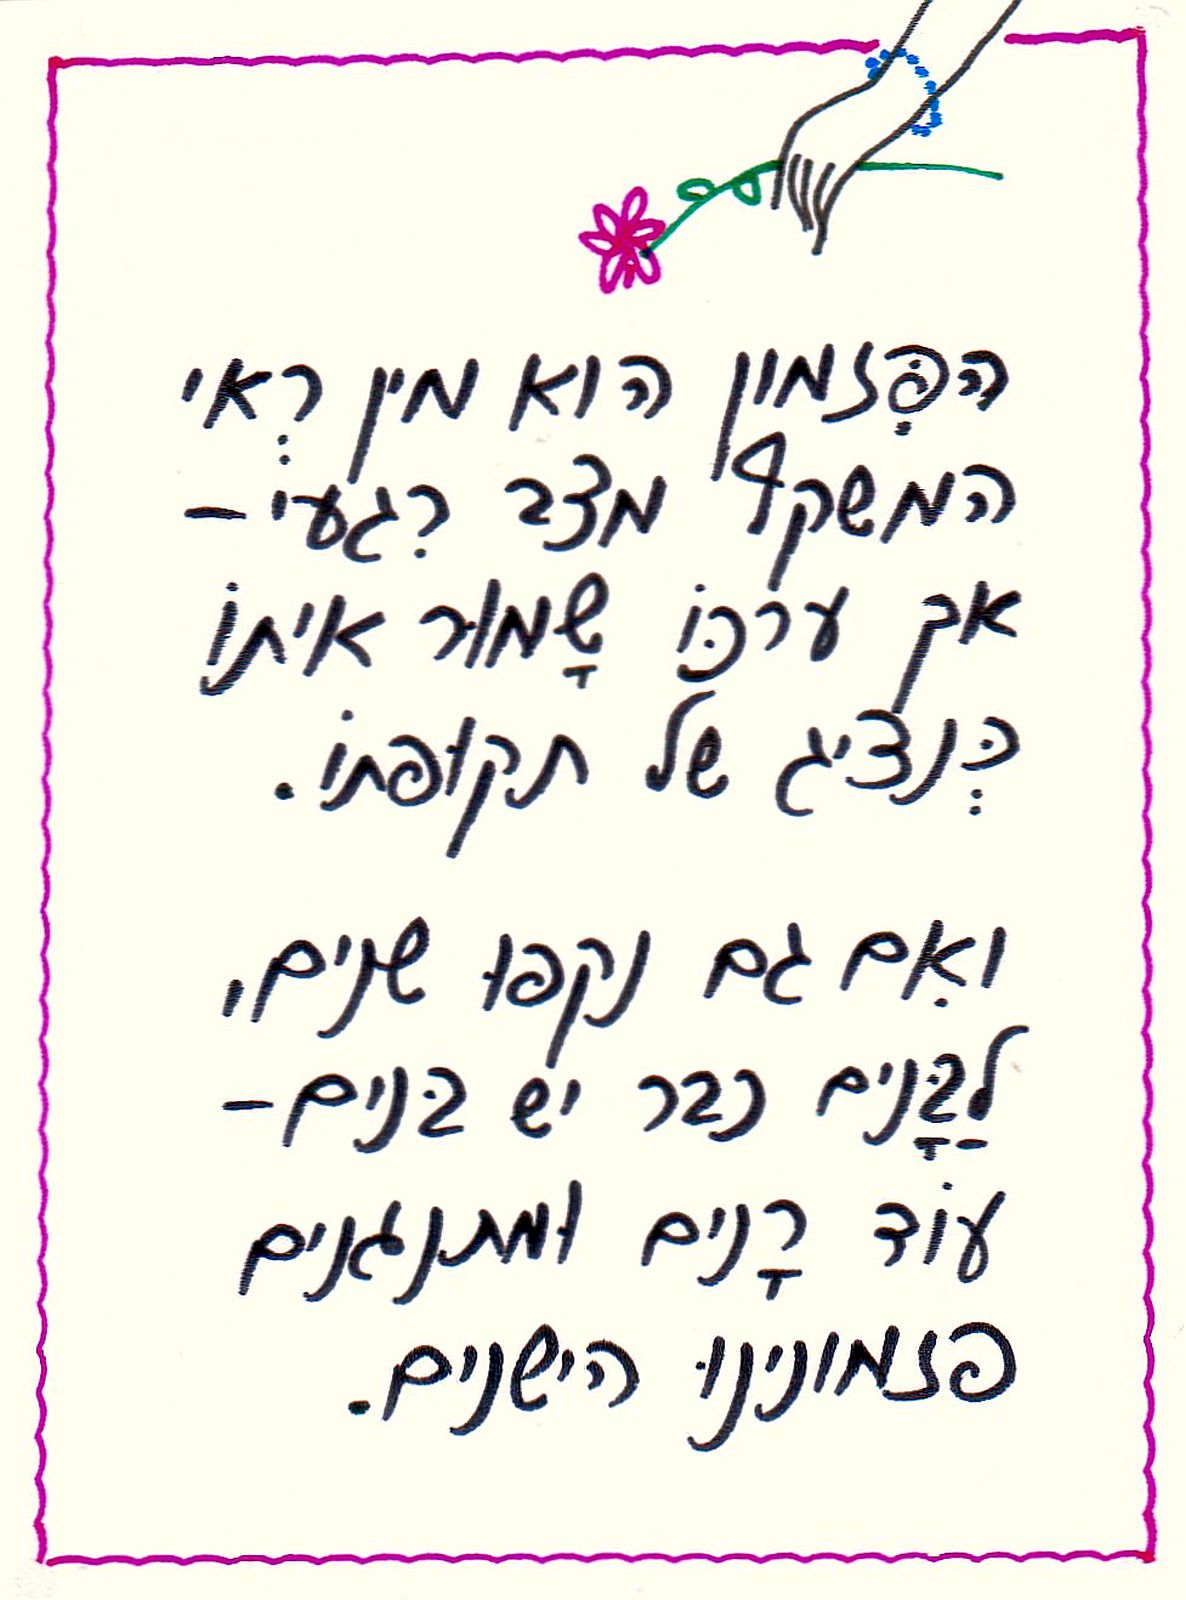 הפִּזמון הוא מין רְאי
המשקף מצב רִגעי –
אך ערכּוֹ שָמור איתוֹ
כִּנְציג של תקופתוֹ.
ואִם גם נקפו שנים,
לַבָּנים כבר יש בּנים –
עוֹד רָנים ומתנגנים
פזמונינוּ הישנים.